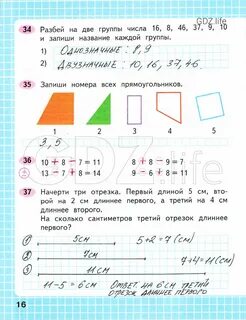 GDZ.life
34 Разбей на две группы числа 16, 8, 46, 37, 9, 10
и запиши название каждой группы.
1) Однозначные : 8, 9
2) Двузначные : 10, 16, 37, 46
35 Запиши номера всех прямоугольников.
1 2 3 4 5
3, 5
36 10 + 8 - 7 = 11 8 + 8 - 9 = 7
13 - 7 + 8 = 14 9 - 6 + 5 = 8
37 Начерти три отрезка. Первый длиной 5 см, вто-
рой на 2 см длиннее первого, а третий на 4 см
длиннее второго.
На сколько сантиметров третий отрезок длиннее
первого?
1 5см 5+2=7(см)
2 7см 7+4=11(см)
3 11см
11-5=6см Ответ на 6см третий
отрезок длиннее первого
16